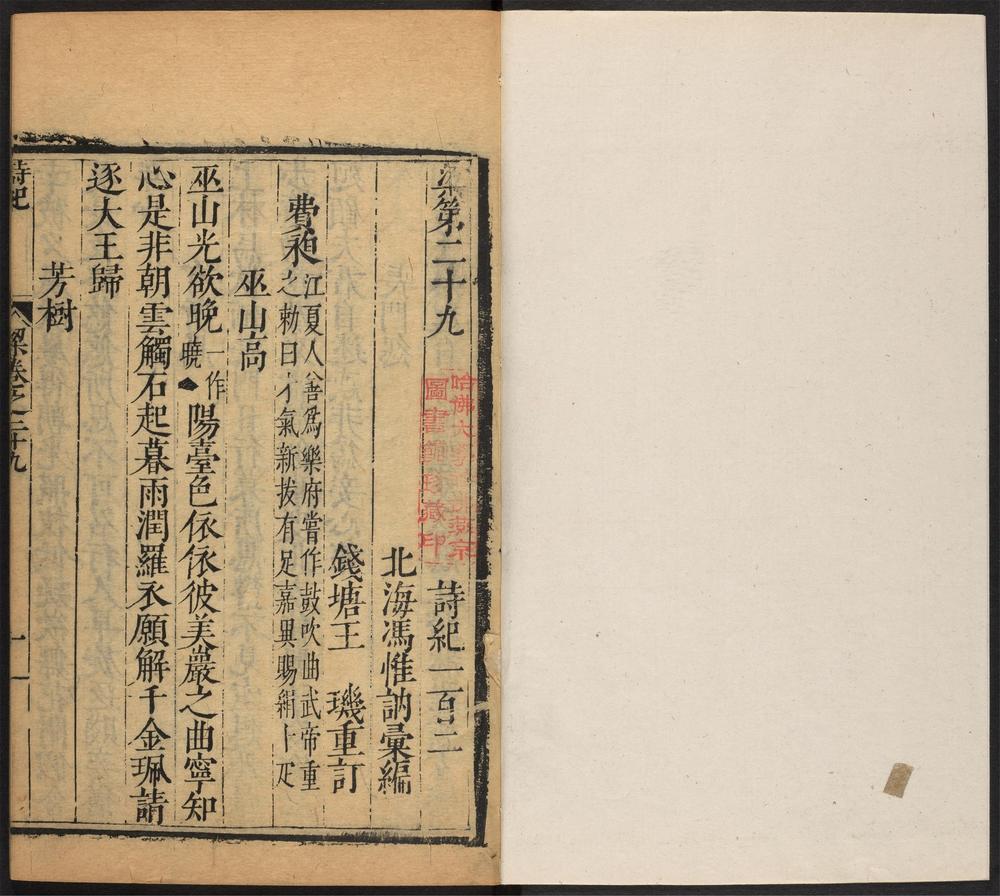 梁第二十九 詩紀一百二
北海馮惟訥彙編
錢塘王 璣重訂
費昶 江夏人善爲樂府嘗作鼓吹曲武帝重
之勑曰才氣新拔有足嘉異賜絹十疋
巫山高
巫山光欲晚一作曉陽臺色依依彼美巖之曲寧知
心是非朝雲觸石起暮雨潤羅衣願解千金珮請
逐大王歸
芳樹
詩紀 梁卷之二十九 一
哈佛大學
圖書館珍藏印